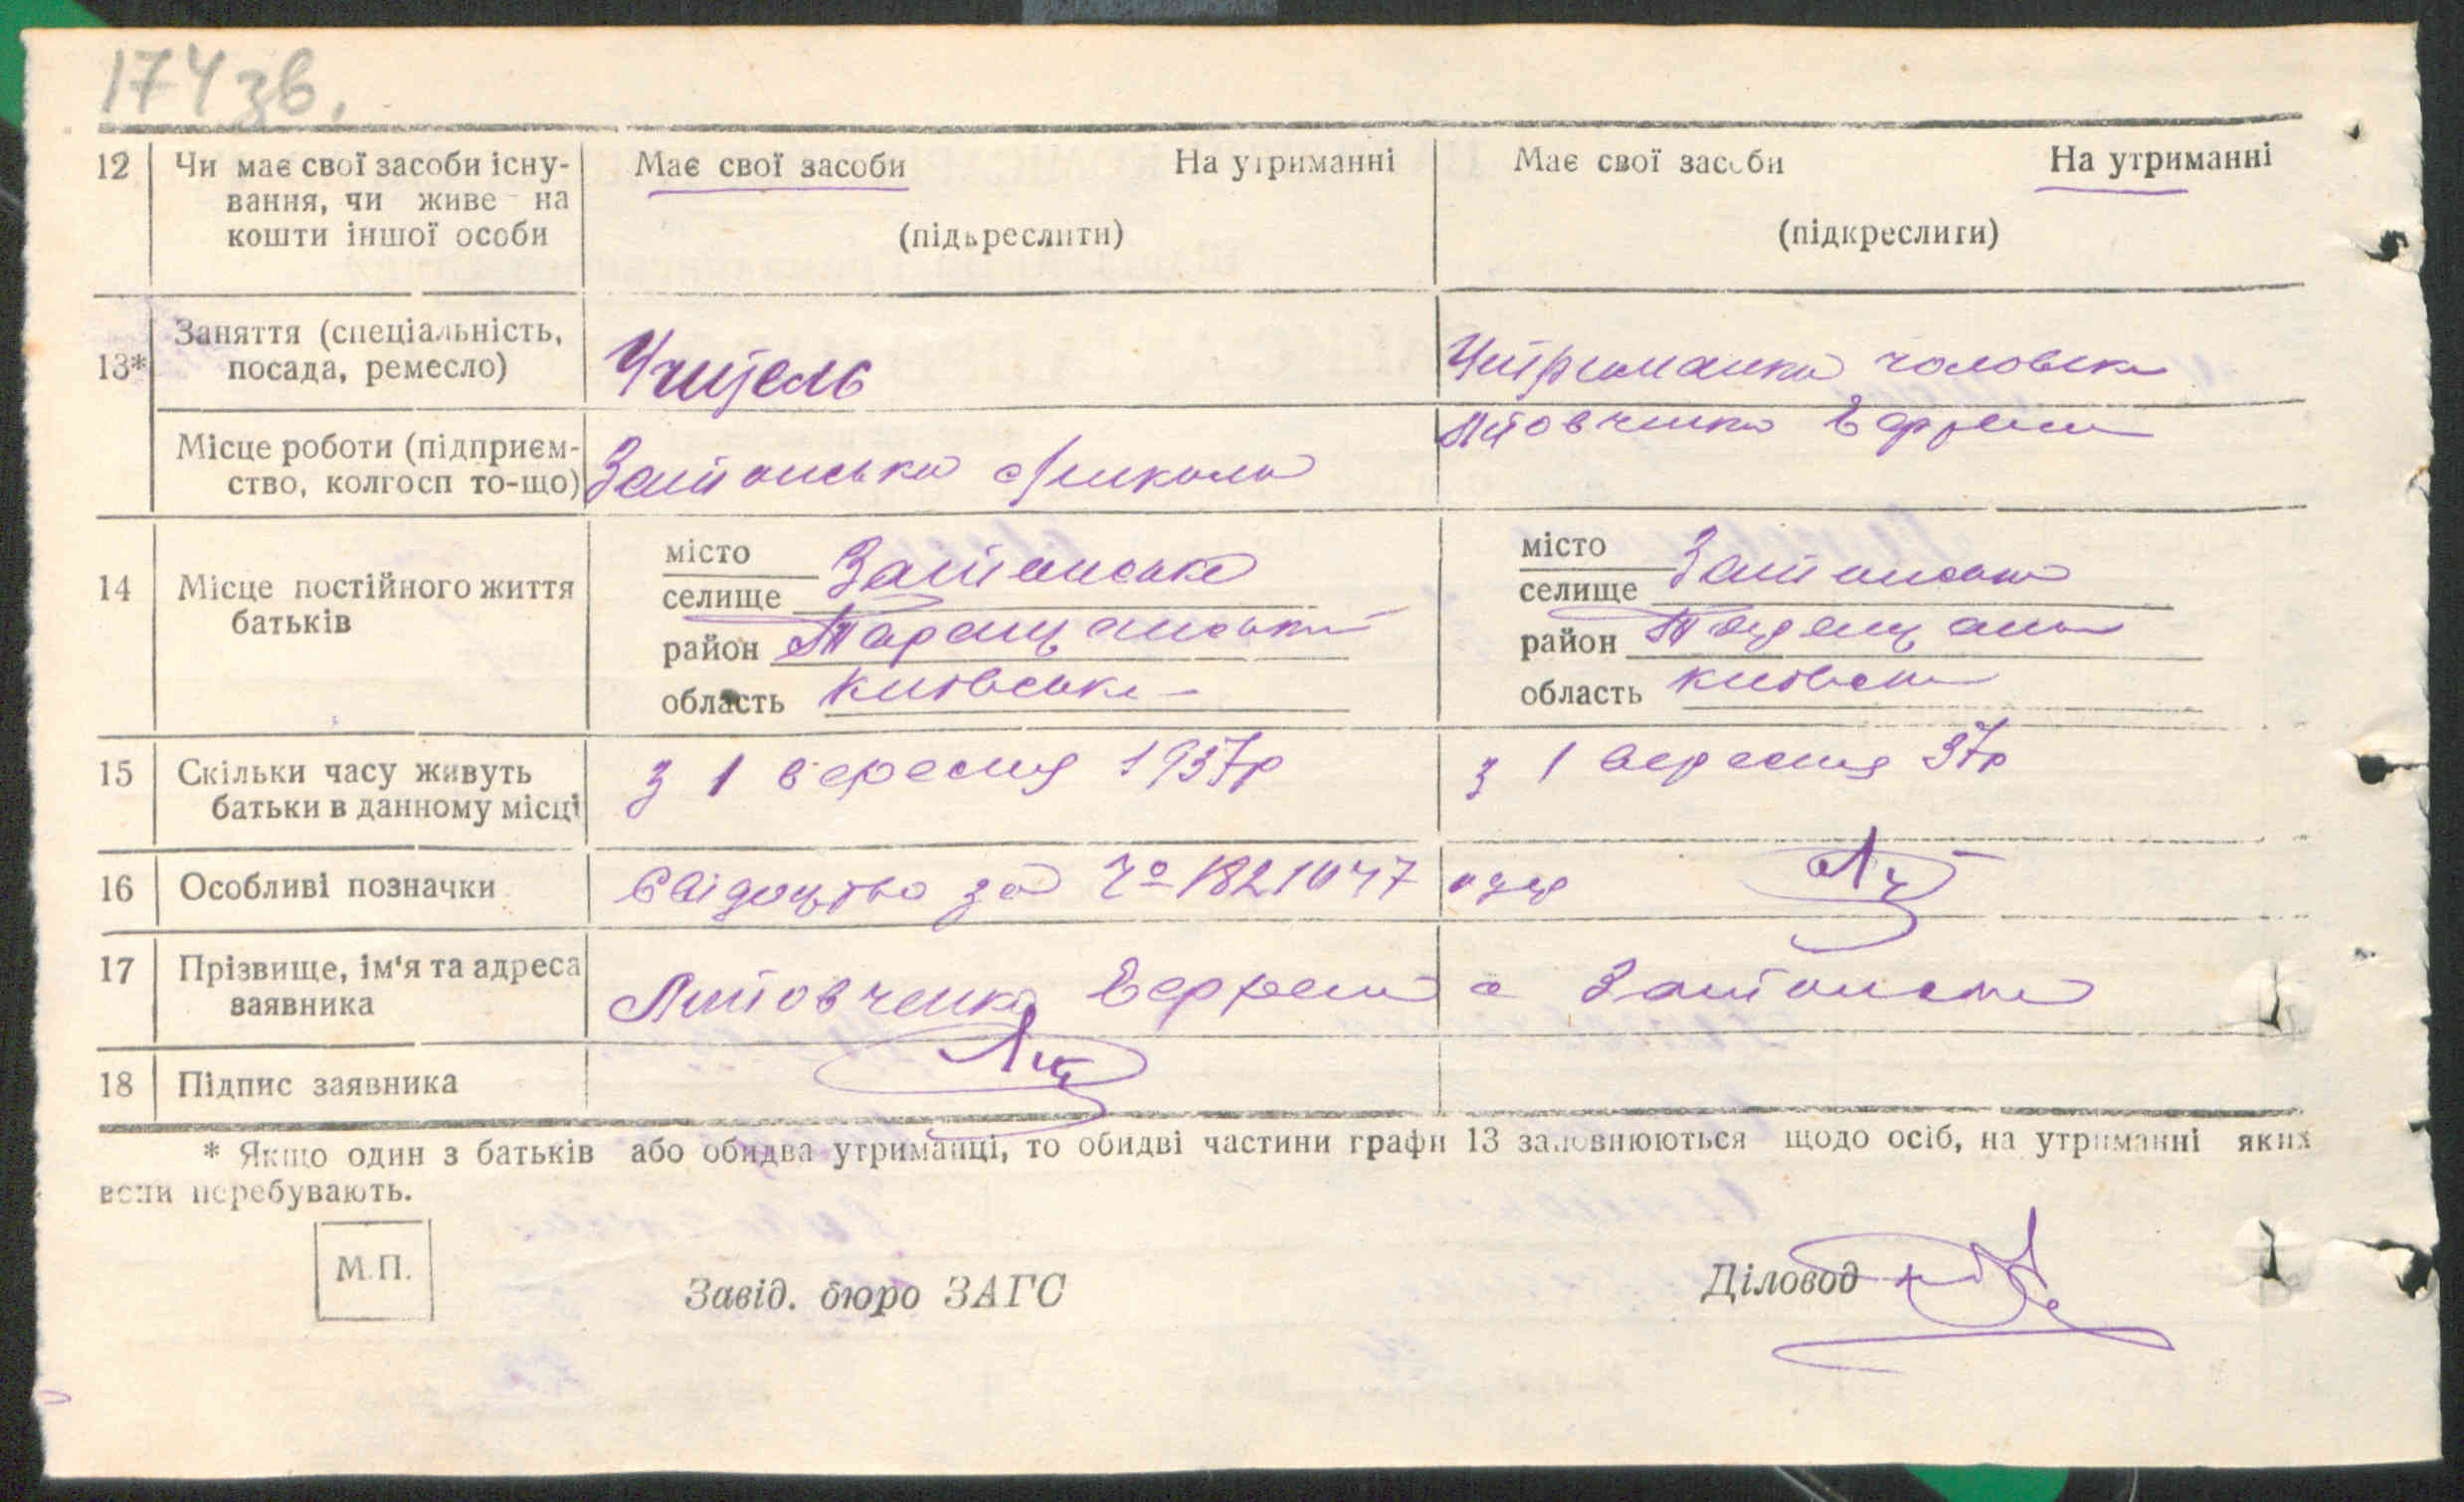 174 зв.
12 Чи має свої засоби існу- Має свої засоби На утриманні Має свої засоби На утриманні
вання, чи живе на
кошти іншої особи (підкреслити) (підкреслити)
13* Заняття (спеціальність,
посада, ремесло) Учитель Утриманка чоловіка
Місце роботи (підприєм- Литовченка Єфрем
ство, колгосп то-що) Затонська Школа
14 Місце постійного життя
батьків
місто Затонське місто Затонське
селище селище
район Таращанський район Таращан
область Київська область Київськ
15 Скільки часу живуть
батьки в данному місці з 1 вересня 1937р з 1 вересня 37р
16 Особливі позначки Свідоцтво за № 1821047
17 Прізвище, ім'я та адреса
заявника Литовченко Єфрем с Затонське
18 Підпис заявника
* Якщо один з батьків або обидва утриманці, то обидві частини графи 13 заповнюються щодо осіб, на утриманні яких
вони перебувають.
М.П.
Завід. бюро ЗАГС Діловод